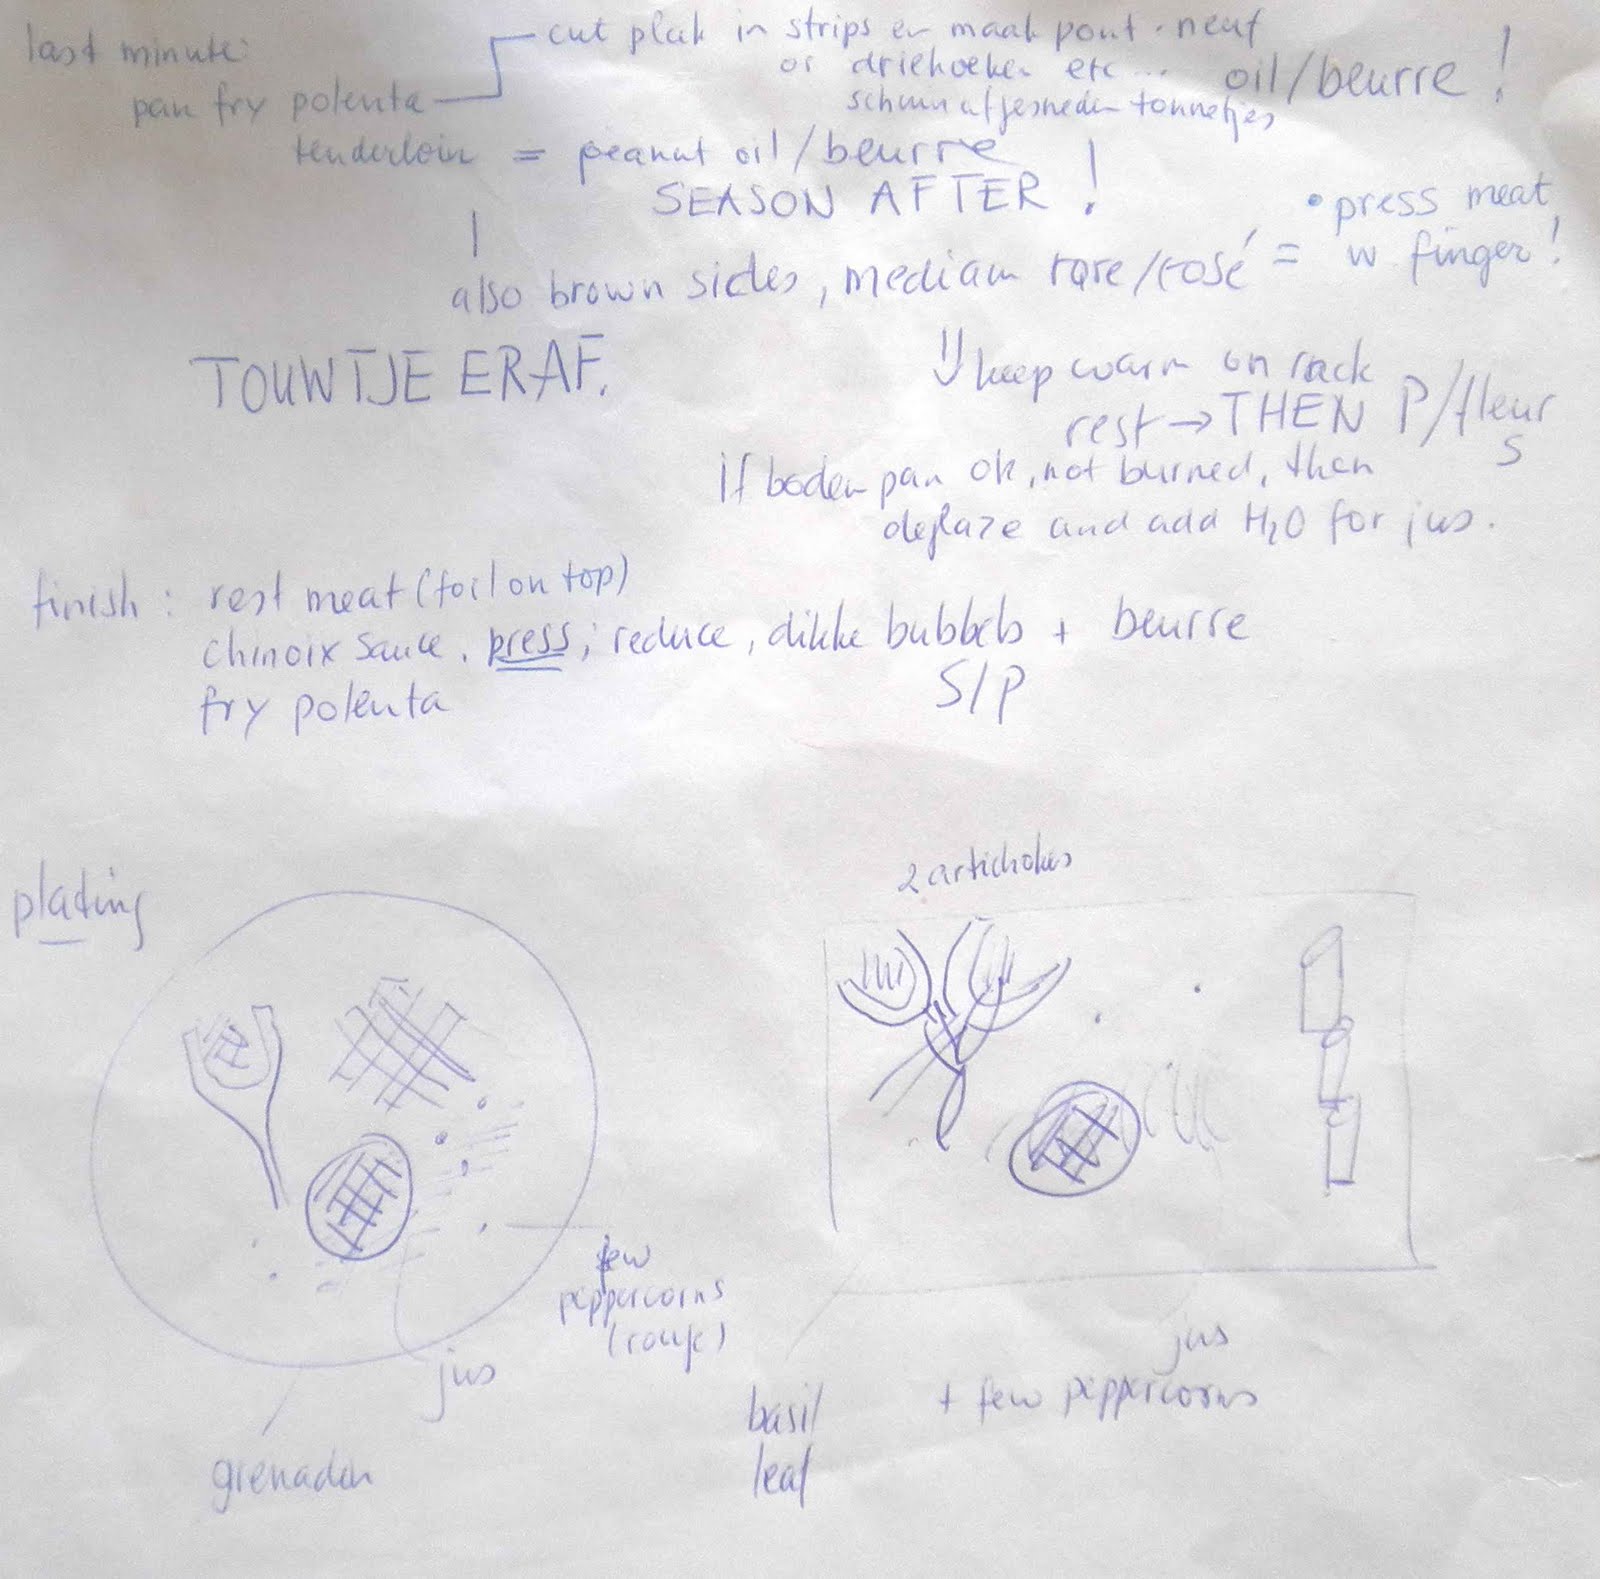 last minute:
cut plak in strips en maak pont-neuf
or driehoeken etc...
oil/beurre !
pan fry polenta
schuin afgesneden tonnetjes
tenderloin = peanut oil/beurre
SEASON AFTER !
• press meat
w finger!
also brown sides, medium rare/rosé =
TOUWTJE ERAF.
!! keep warm on rack
rest → THEN P/fleur
S
If bodem pan ok, not burned, then
deglaze and add H2O for jus.
finish: rest meat (foil on top)
chinoix sauce. press; reduce, dikke bubbels + beurre
S/P
fry polenta
plating
2 artichokes
few
peppercorns
(rouge)
jus
grenadin
basil
leaf
jus
+ few peppercorns